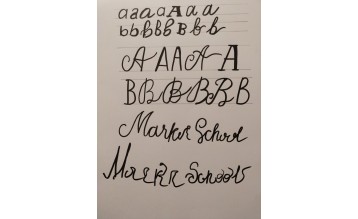 aaaaAaa
bbbbBbb
AAAAA
BBBBBBB
Markr School
Markr School